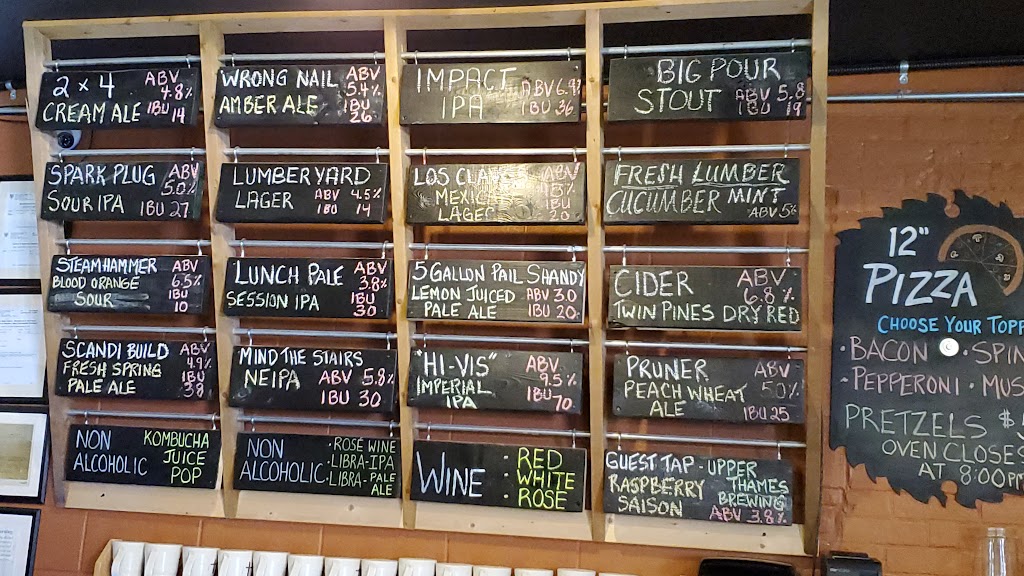 2 x 4 ABV 4.8%
CREAM ALE IBU 14
WRONG NAIL ABV 5.4%
AMBER ALE IBU 26
IMPACT
IPA ABV 6.4%
IBU 36
BIG POUR
STOUT ABV 5.8
IBU 19
SPARK PLUG ABV 5.0%
SOUR IPA IBU 27
LUMBERYARD
LAGER ABV 4.5%
IBU 14
LOS ABV
LAGER IBU 20
FRESH LUMBER
CUCUMBER MINT
ABV 5%
STEAMHAMMER ABV
BLOOD ORANGE 6.5%
SOUR IBU 10
LUNCH PALE ABV 3.8%
SESSION IPA IBU 30
5 GALLON PAIL SHANDY
LEMON JUICED ABV 3.0
PALE ALE IBU 20
CIDER ABV
6.8%
TWIN PINES DRY RED
SCANDI BUILD ABV
FRESH SPRING 4.9%
PALE ALE IBU 38
MIND THE STAIRS
NEIPA ABV 5.8%
IBU 30
"HI-VIS" ABV
IMPERIAL 9.5%
IPA IBU 70
PRUNER ABV
PEACH WHEAT 5.0%
ALE IBU 25
NON ALCOHOLIC
KOMBUCHA
JUICE
POP
NON ALCOHOLIC
· ROSÉ WINE
· LIBRA-IPA
· LIBRA-PALE ALE
WINE
· RED
· WHITE
· ROSE
GUEST TAP - UPPER
RASPBERRY THAMES
SAISON BREWING
ABV 3.8%
12"
PIZZA
CHOOSE YOUR TOPP
· BACON · SPIN
· PEPPERONI · MUS
PRETZELS $
OVEN CLOSES
AT 8:00PM